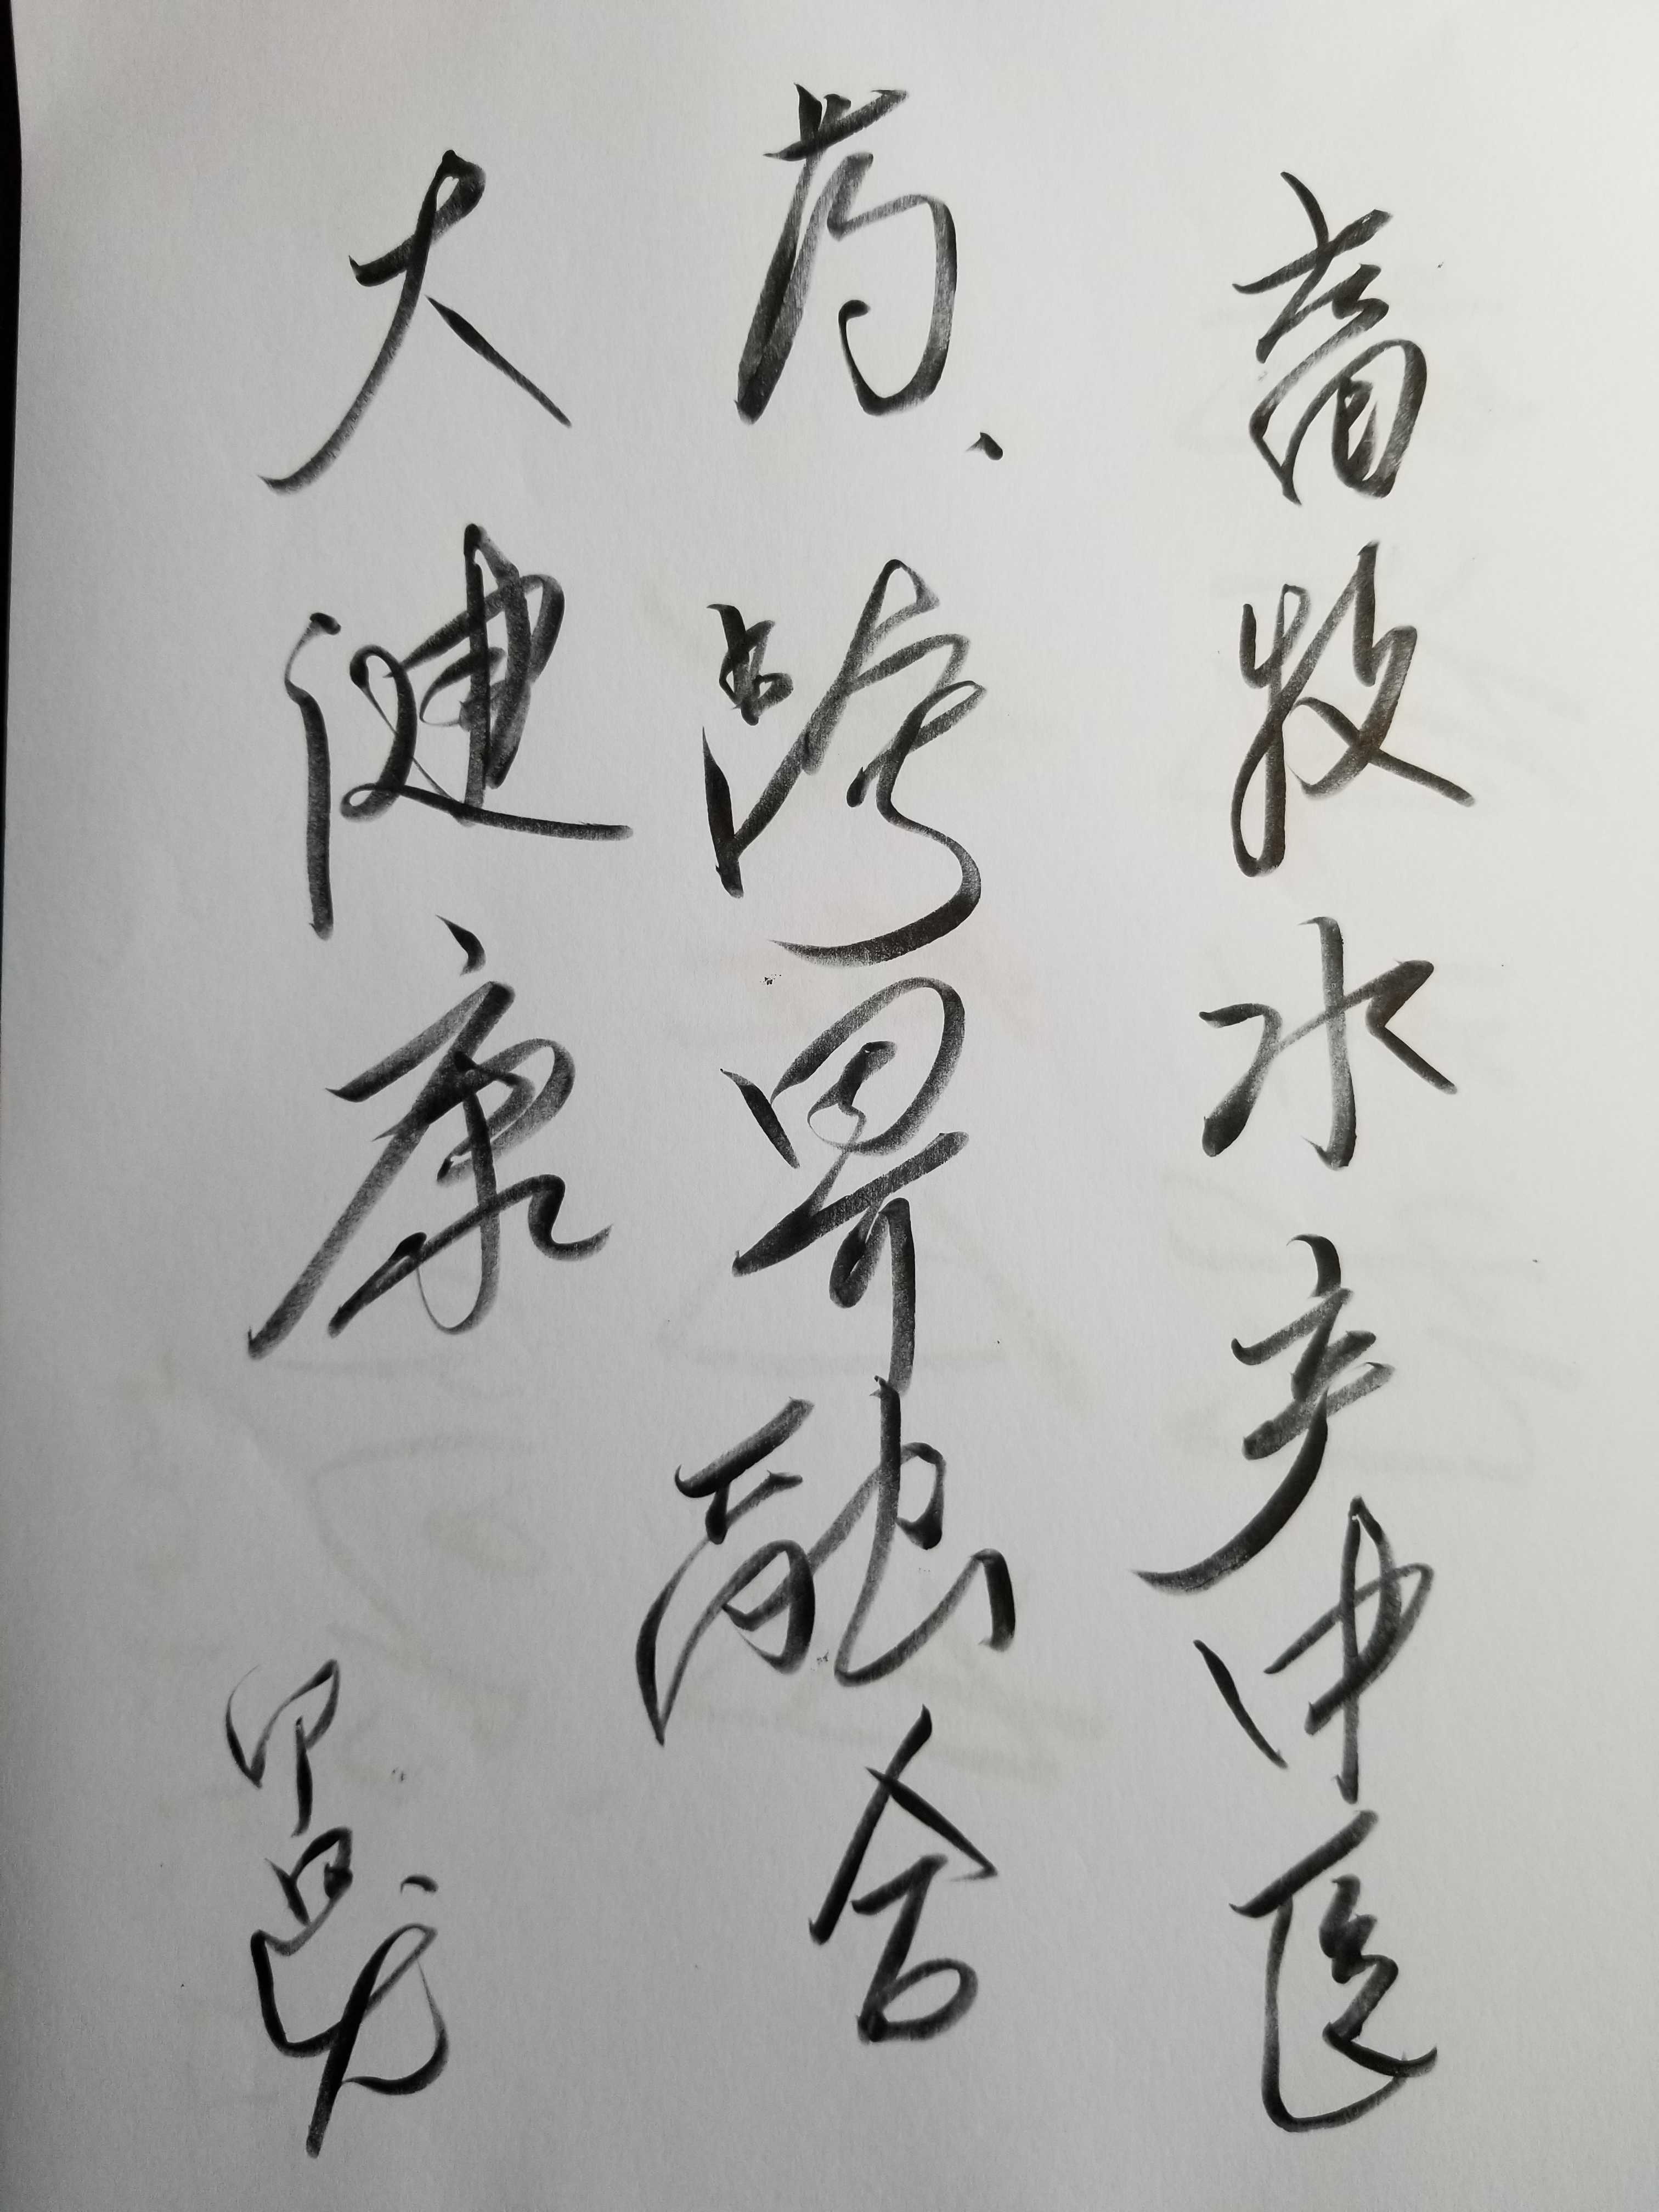 畜牧水产中医
药、跨界融合
大健康